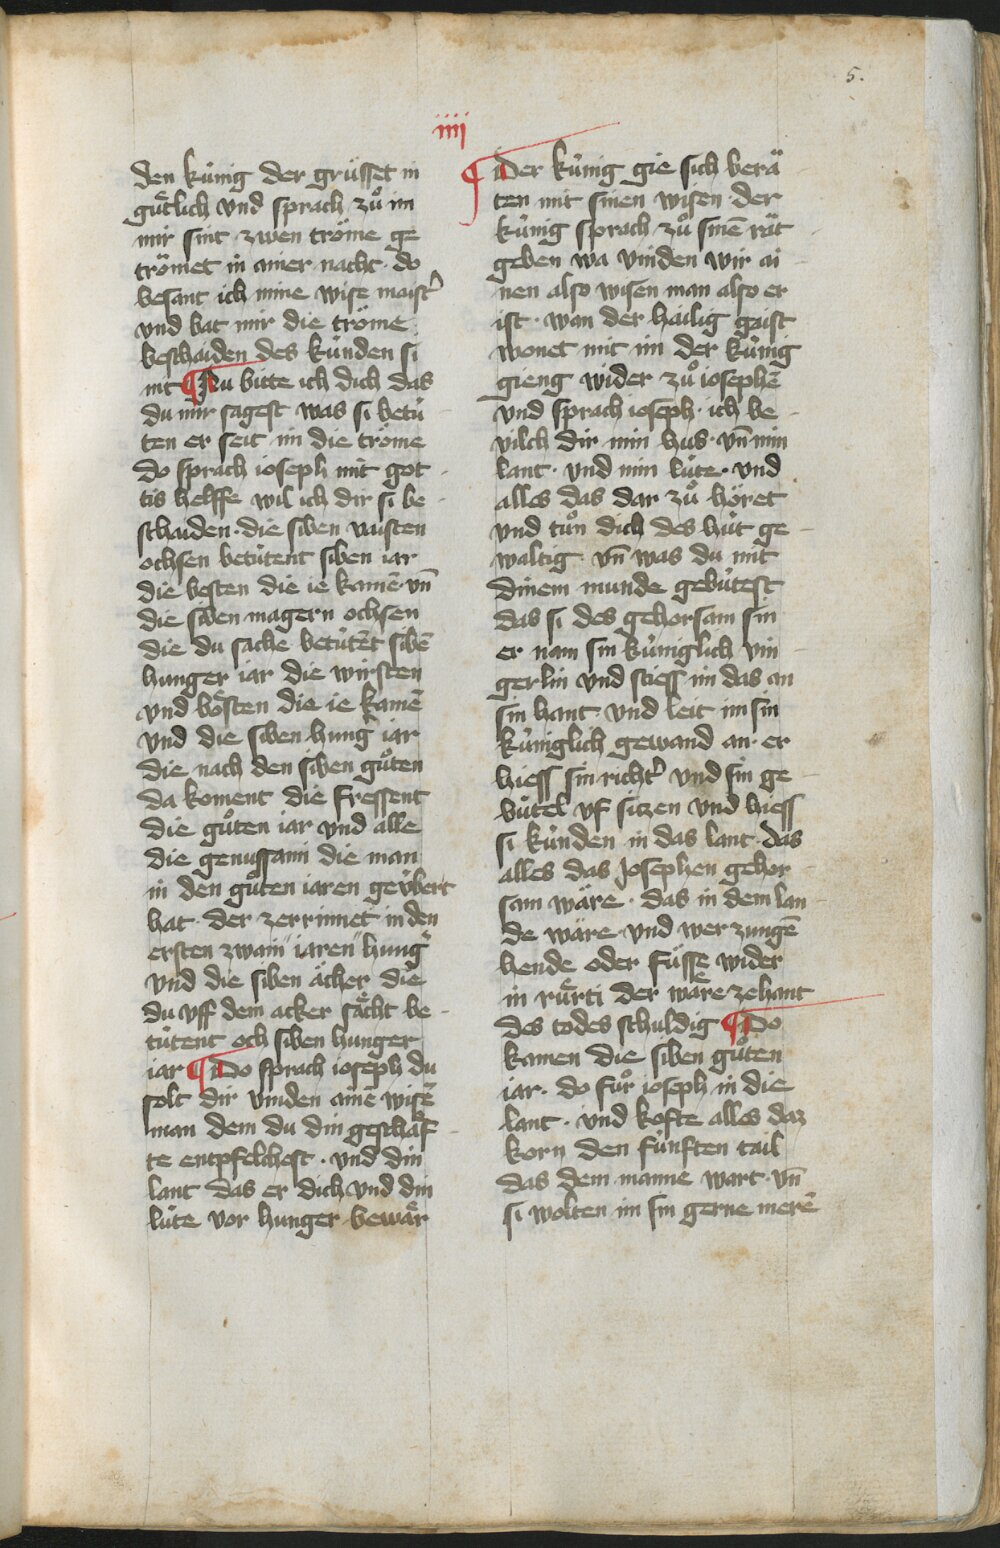 5.
iiij
den kúnig der grüsset in
gütlich vnd sprach zuͦ im
mir sint zwen tröme ge
trömet in ainer nacht · do
besant ich mine wise maistˀ
vnd bat mir die tröme
beschaiden des kunden si
nit ¶ Nu bitte ich dich das
du mir sagest was si betú
ten er seit im die tröme
do sprach ioseph mit got
tis helffe wil ich dir si be
schaiden · die siben vaisten
ochsen betútent siben iar
die besten die ie kamē · vn̄
die siben magern ochsen
die du sache betútēt sibē
hunger iar die wirsten
vnd bösten die ie kamē
vnd die siben hungˀ iar
die nach den siben guͦten
da koment die fressent
die guͦten iar vnd alle
die genussami die man
in den guͦten iaren geúbert
hat · der zerrinnet in den
ersten zwain iaren hungˀ
vnd die siben ächer die
du vff dem acker sächt be
tútent och siben hunger
iar ¶ Do sprach ioseph du
solt dir vinden ainē wisē
man dem du din geschäf
te entpfelchest · vnd din
lant das er dich vnd din
lúte vor hunger bewär
¶ Der kúnig gie sich berä
ten mit sinen wisen der
kúnig sprach zuͦ sinē rät
geben wa vinden wir ai
nen also wisen man also er
ist · wan der hailig gaist
wonet mit im der kúnig
gieng wider zuͦ iosephē
vnd sprach ioseph · ich be
vilch dir min hus · vn̄ min
lant · vnd min lúte · vnd
alles das dar zuͦ höret
vnd tuͦn dich des hút ge
waltig vn̄ was du mit
dinem munde gebútest
das si des gehorsam sin
er nam sin kúniglich vin
gerlin vnd stiess im das an
sin hant · vnd leit im sin
kúniglich gewand an · er
hiess sin richtˀ vnd sin ge
bútel vf sitzen vnd hiess
si kúnden in das lant · das
alles das Josephen gehor
sam wäre · das in dem lan
de wäre vnd wer zungē
hende oder füsse wider
in rürti der wäre zehant
des todes schuldig ¶ Do
kamen die siben guͦten
iar · do fuͦr ioseph in die
lant · vnd kofte alles daz
korn den fúnften tail
das dem manne wart · vn̄
si wolten im sin gerne merē